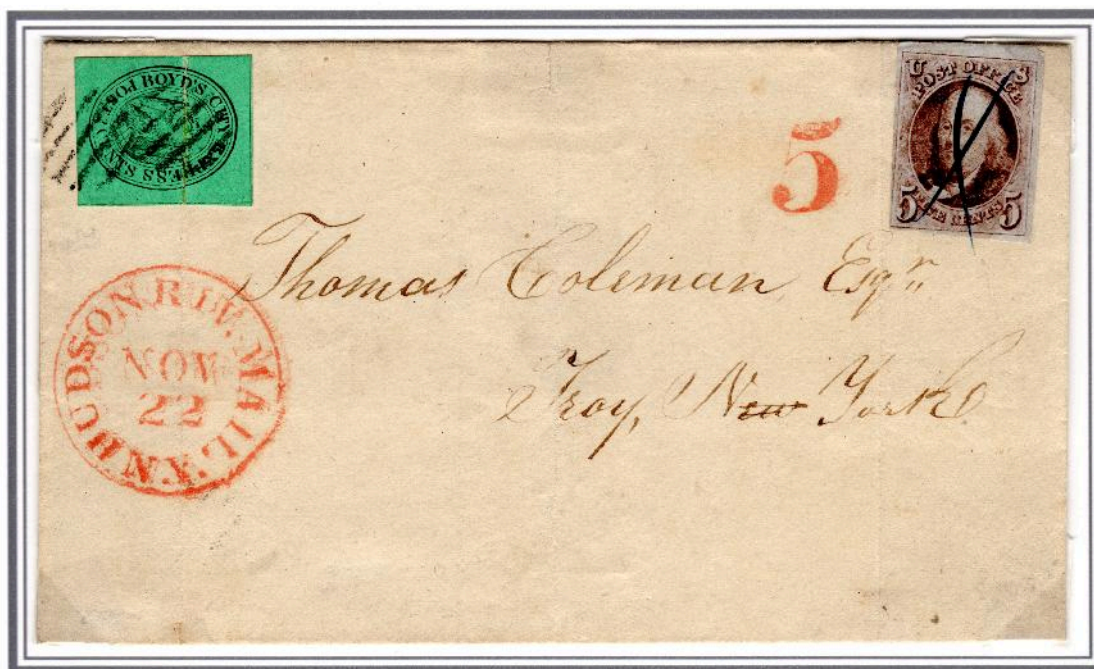 BOYD'S CITY EXPRESS POST
CENTS
U S
POST OFFICE
5 FIVE CENTS 5
5
Thomas Coleman Esqr
Troy, New York
HUDSON RIV. MAIL N.Y.
NOV
22